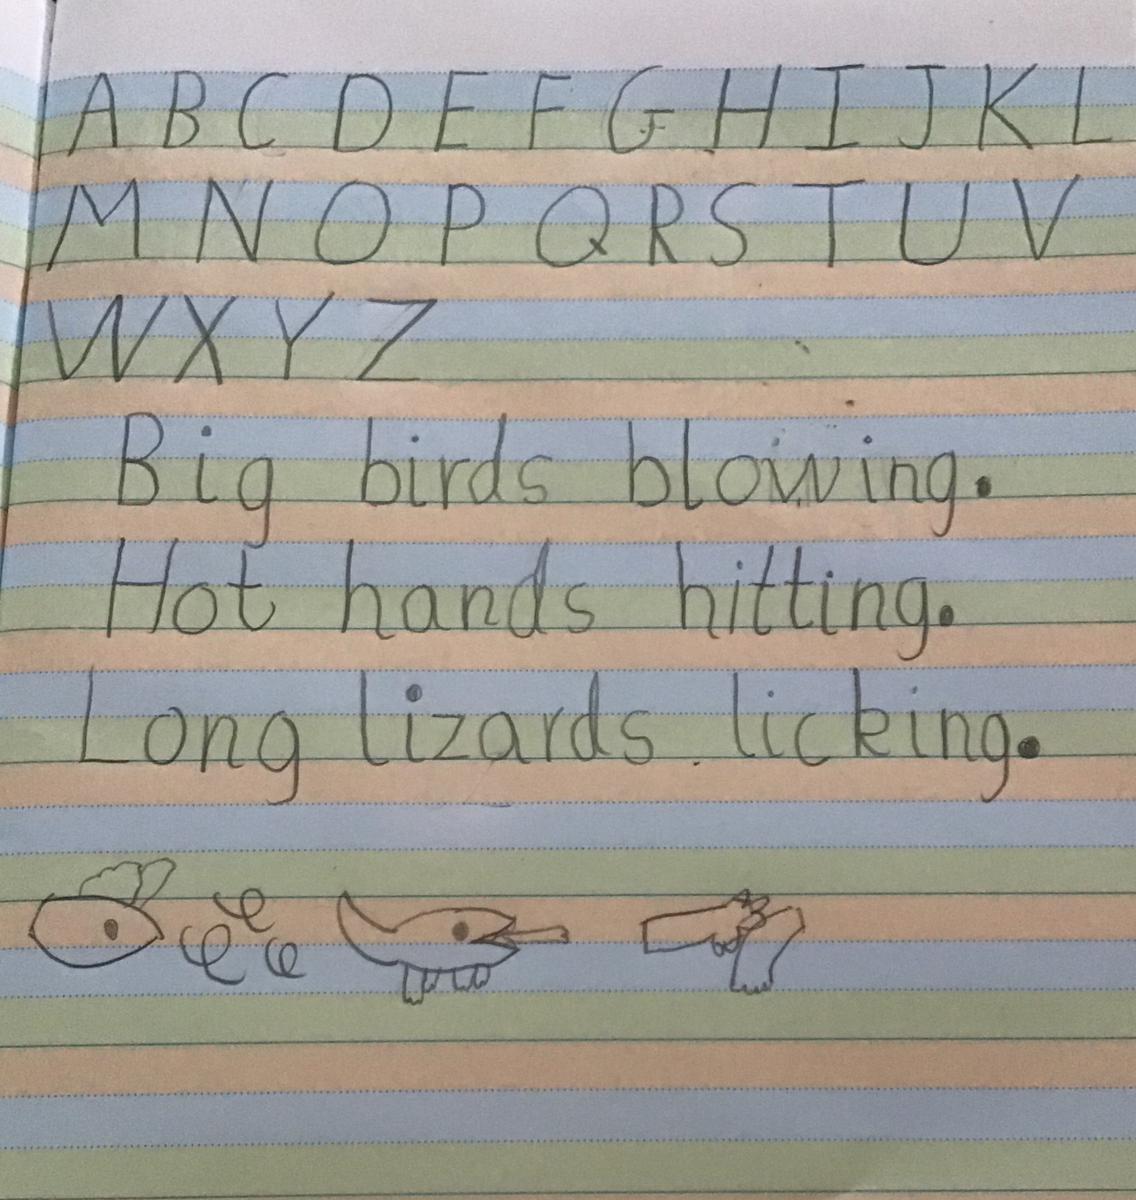 A B C D E F G H I J K L
M N O P Q R S T U V
W X Y Z
Big birds blowing.
Hot hands hitting.
Long lizards licking.